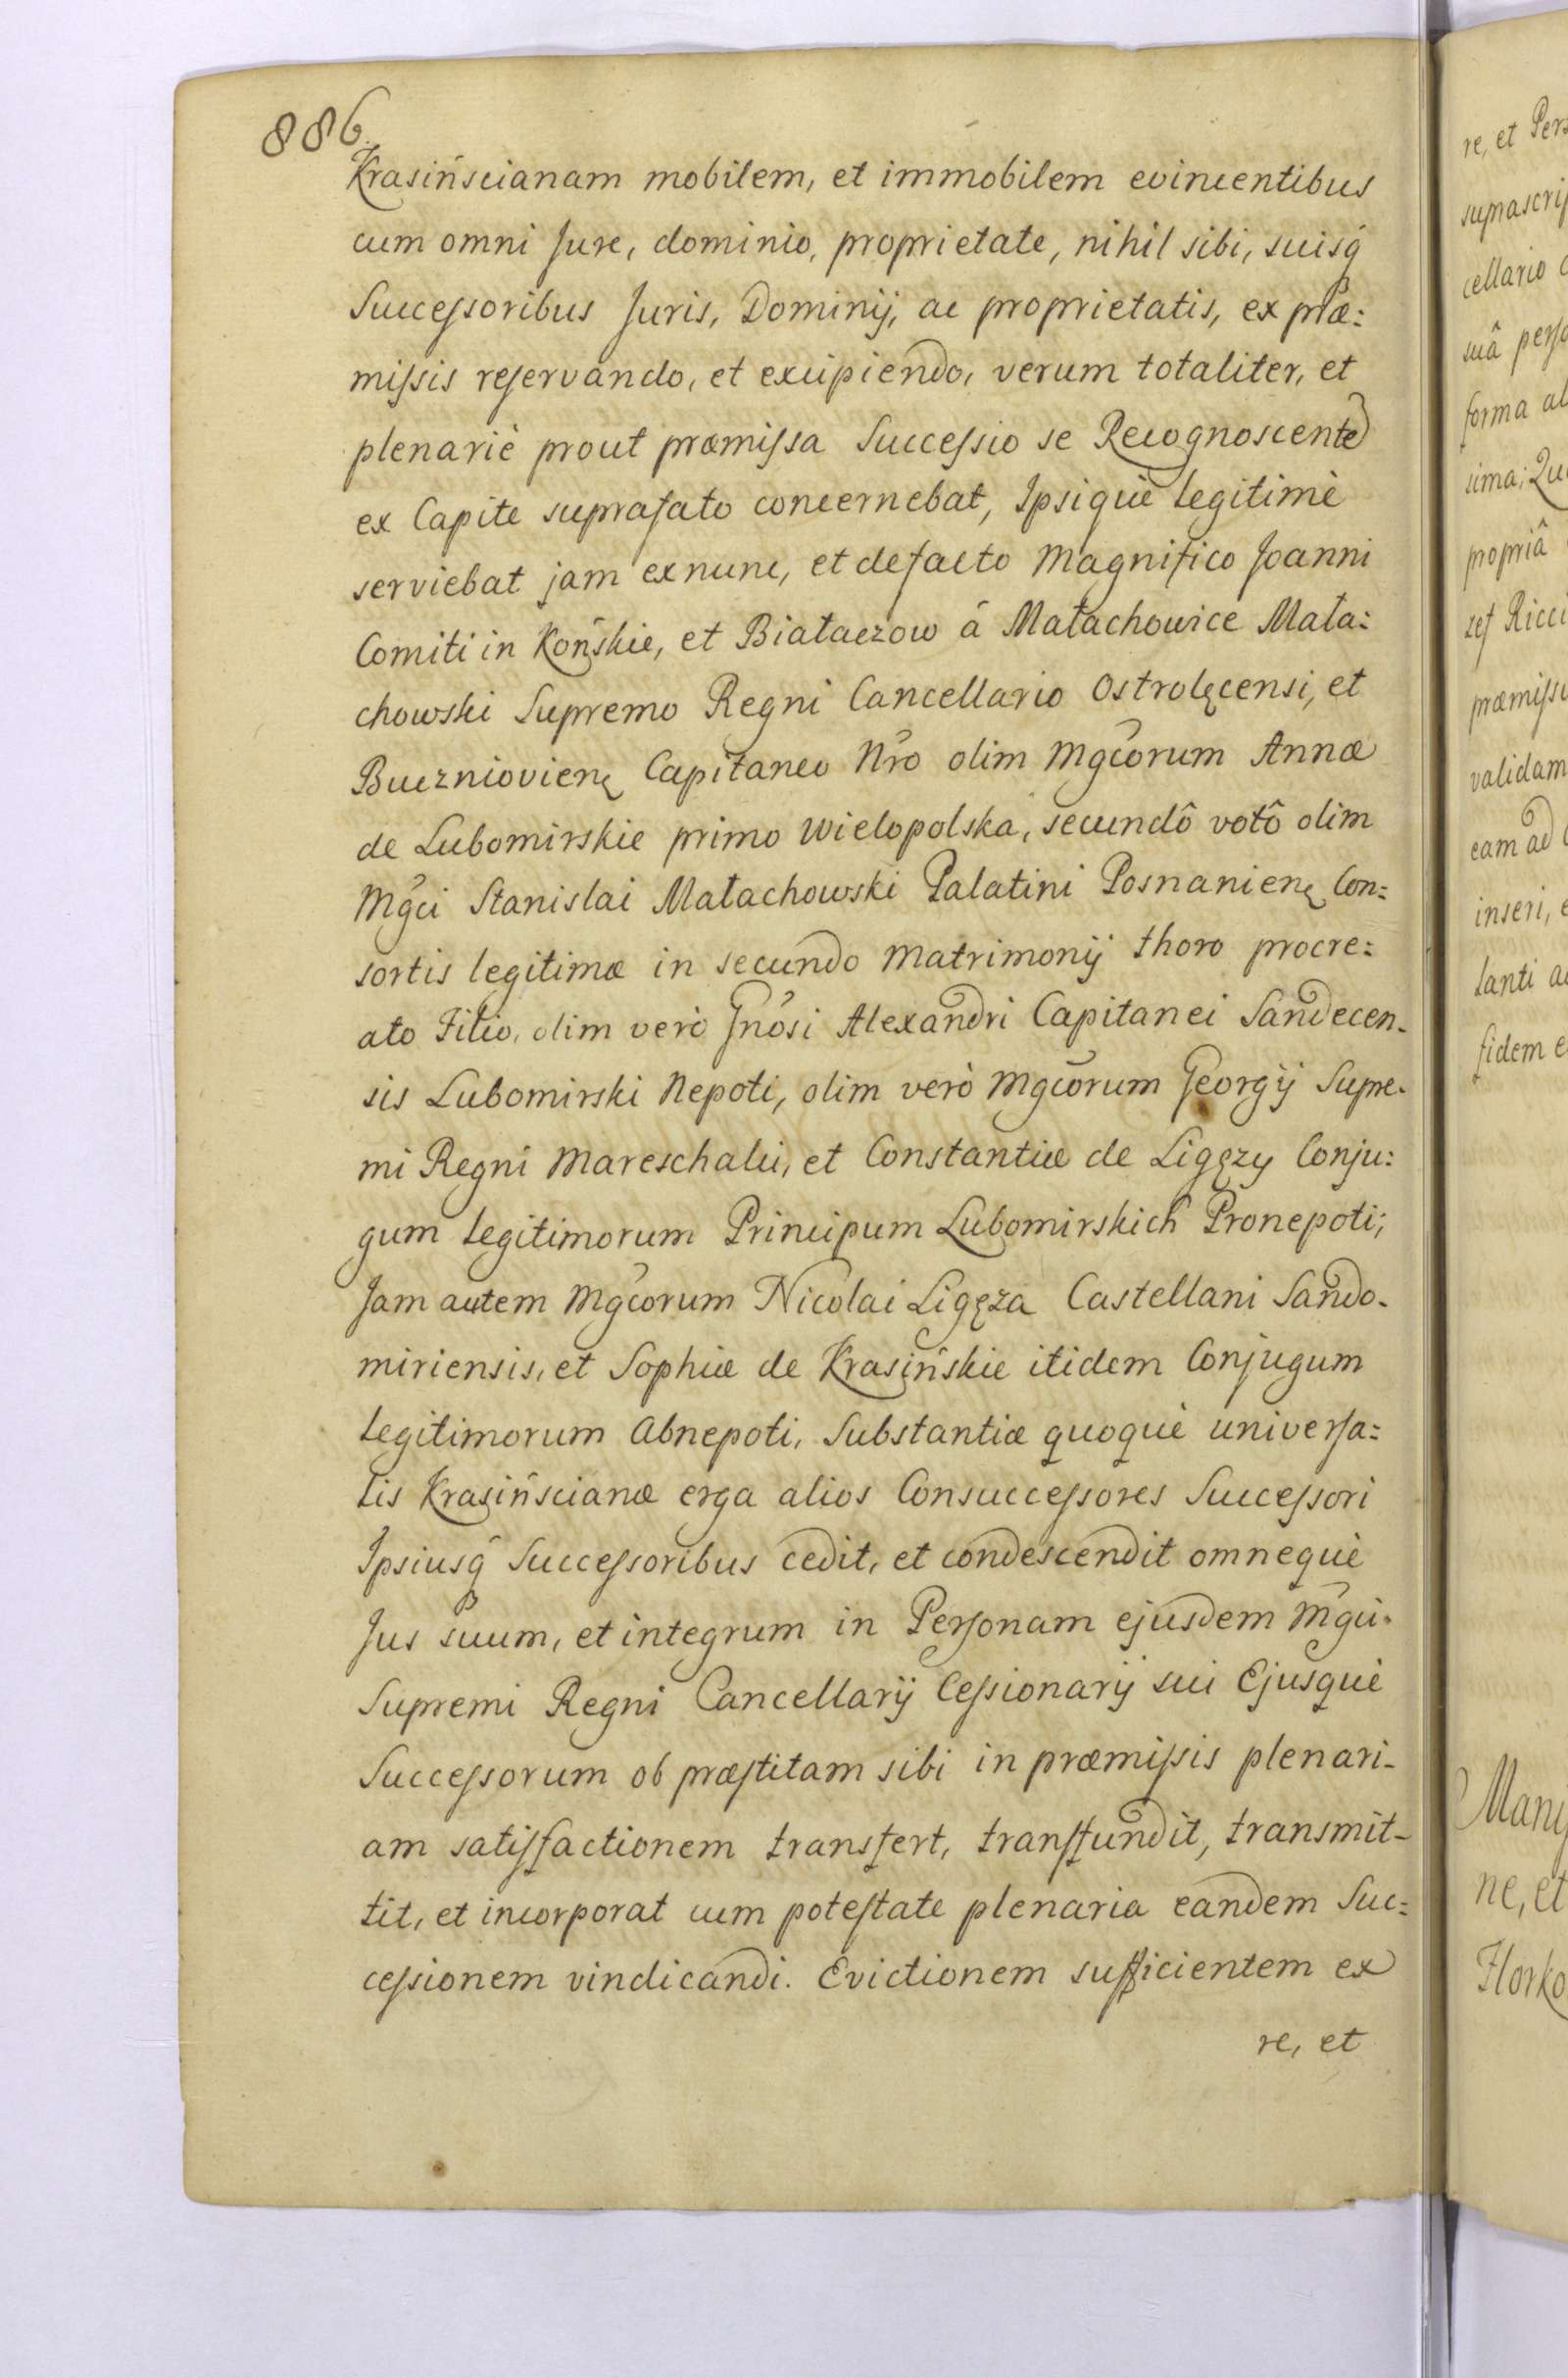 886.
Krasińscianam mobilem, et immobilem evincentibus
cum omni Jure, dominio, proprietate, nihil sibi, suisq́
Successoribus Juris, Dominij, ac proprietatis, ex præ:
missis reservando, et excipiendo, verum totaliter, et
plenariè prout præmissa Successio se Recognoscente
ex Capite suprafato concernebat, Ipsiquè legitimè
serviebat jam exnunc, et defacto Magnifico Joanni
Comiti in Końskie, et Białaczow á Małachowice Mała:
chowski Supremo Regni Cancellario Ostrolęcensi, et
Buczniovien̨ Capitaneo Nr̃o olim Mgc̃orum Annæ
de Lubomirskie primo Wielopolska, secundô votô olim
Mgc̃i Stanislai Małachowski Palatini Posnanien̨ Con:
sortis legitimæ in secundo Matrimonij thoro procre:
ato Filio, olim verò Gnõsi Alexandri Capitanei Sandecen-
sis Lubomirski Nepoti, olim verò Mgc̃orum Georgij Supre-
mi Regni Mareschalci, et Constantiæ de Ligęzy Conju:
gum legitimorum Principum Lubomirskich Pronepoti;
Jam autem Mgc̃orum Nicolai Ligęza Castellani Sando-
miriensis, et Sophiæ de Krasińskie itidem Conjugum
legitimorum Abnepoti, Substantiæ quoquè universa:
lis Krasińscianæ erga alios Consuccessores Successori
Ipsiusq́ Successoribus cedit, et condescendit omnequè
Jus suum, et integrum in Personam ejusdem Mgc̃i.
Supremi Regni Cancellarij Cessionarij sui Ejusquè
Successorum ob præstitam sibi in præmissis plenari-
am satisfactionem transfert, transfundit, transmit-
tit, et incorporat cum potestate plenaria eandem Suc:
cessionem vindicandi. Evictionem sufficientem ex
re, et
re, et Pers
suprascrip
cellario
suâ perso
forma al
sima; Qu
propriâ
zef Ricci
præmiss
validam
eam ad
inseri, e
lanti a
fidem e
Man
ne, et
Florko